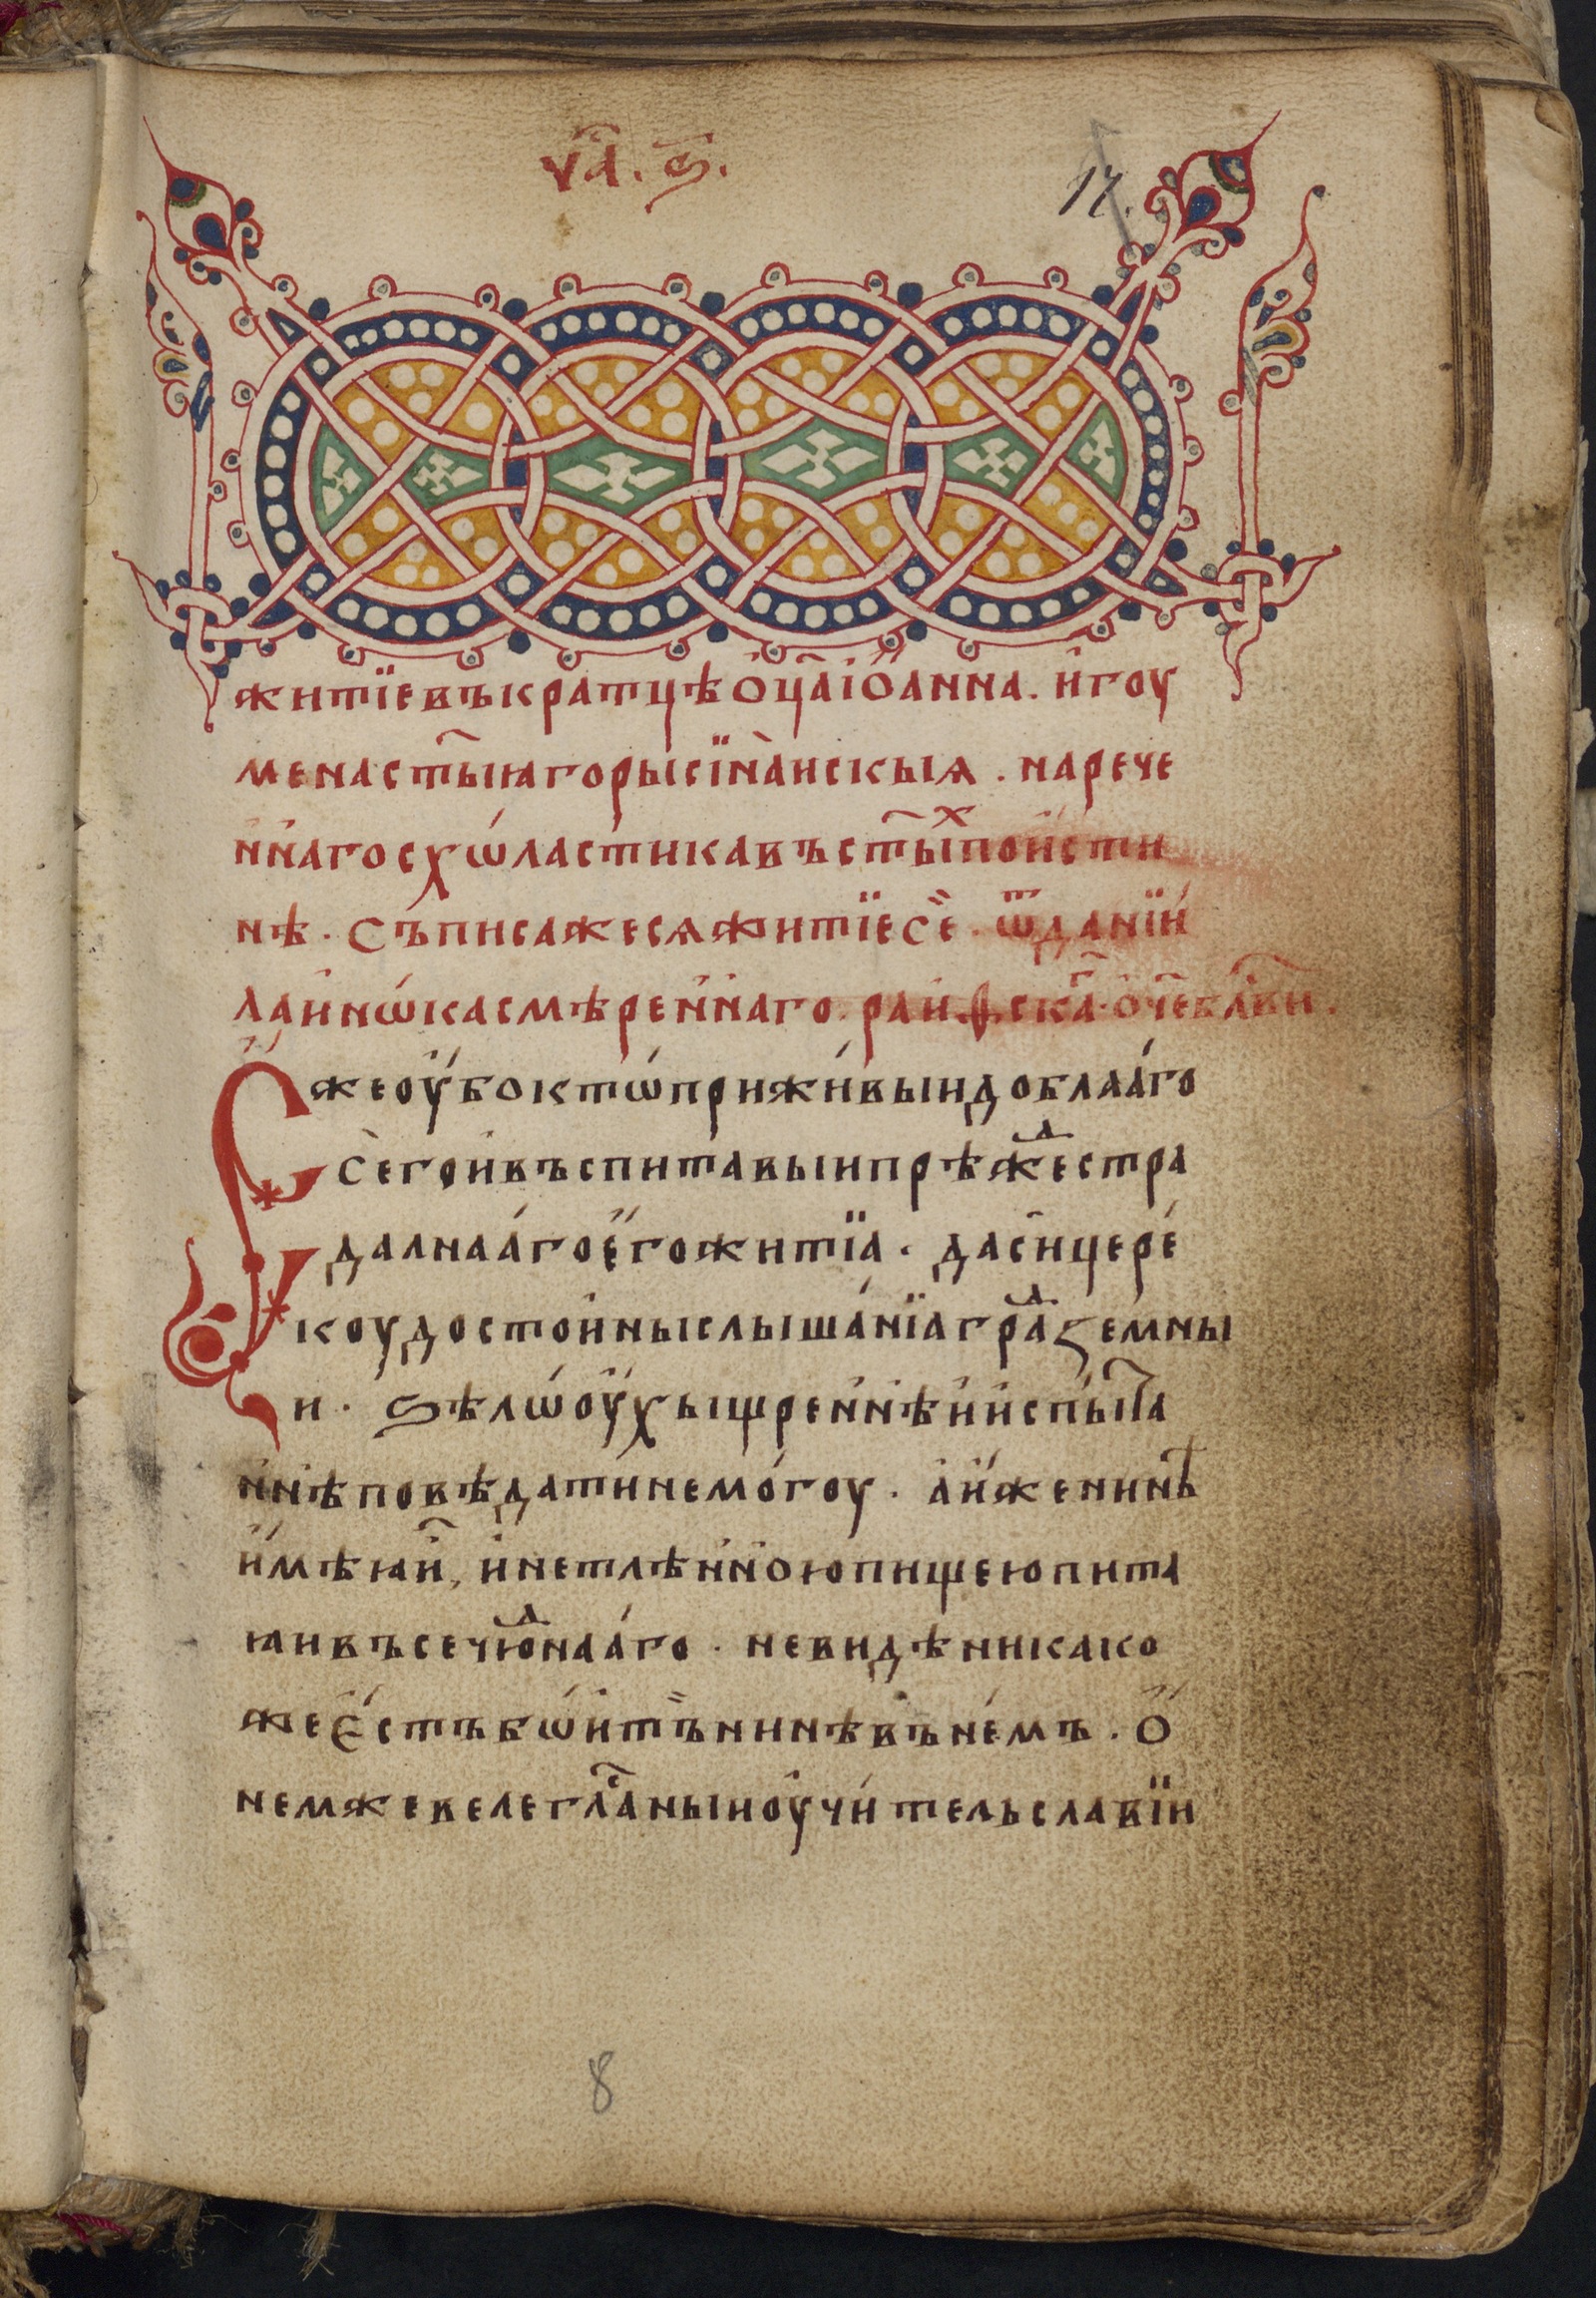 ча҃. ѕ҃.
17.
житїевъкратцѣѻц҃аіѻанна. игоу
менаст҃ыꙗгорысїнаискыѧ. нарече
ннагосхѡластикавъст҃ыⷯпоисти
нѣ. съписажесѧжитїесе. ѿданїи
лаинѡкасмѣреннаго. раиѳскаⷢ. ѻч҃ебл҃ви.
Ежеоубоктѡприживыидоблааго
сегоивъспитавыипрѣжⷣестра
далнаагоегожитїа. дасицере
коудостоиныслышанїаграⷣземны
и. ѕѣлѡоухыщреннѣииспыта
ннѣповѣдатинемогоу. аиженинѣ
имѣꙗи, инетлѣнноюпищеюпита
ꙗивъсечюⷣнааго. невидѣникако
жеестъбѡитънинѣвънемъ. ѻ
немжевелегла҃ныиоучительславїи
8